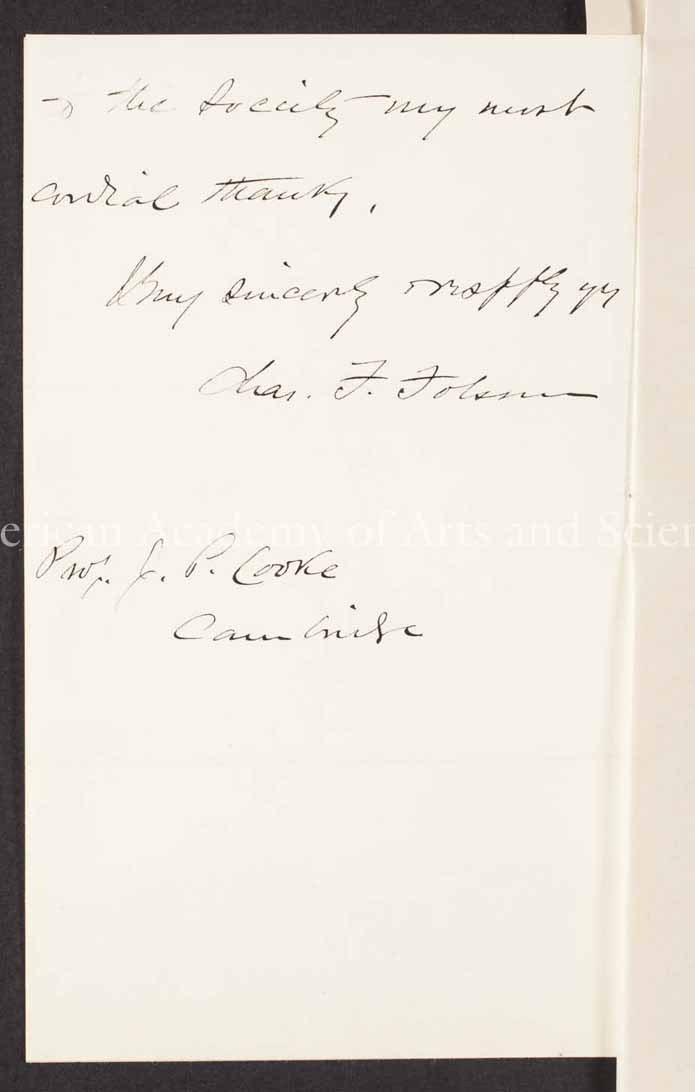 to the Society my most
cordial thanks.
Very sincerely & respfly yrs
Chas. F. Folsom
erican Academy of Arts and Scien
Prof. J. P. Cooke
Cambridge